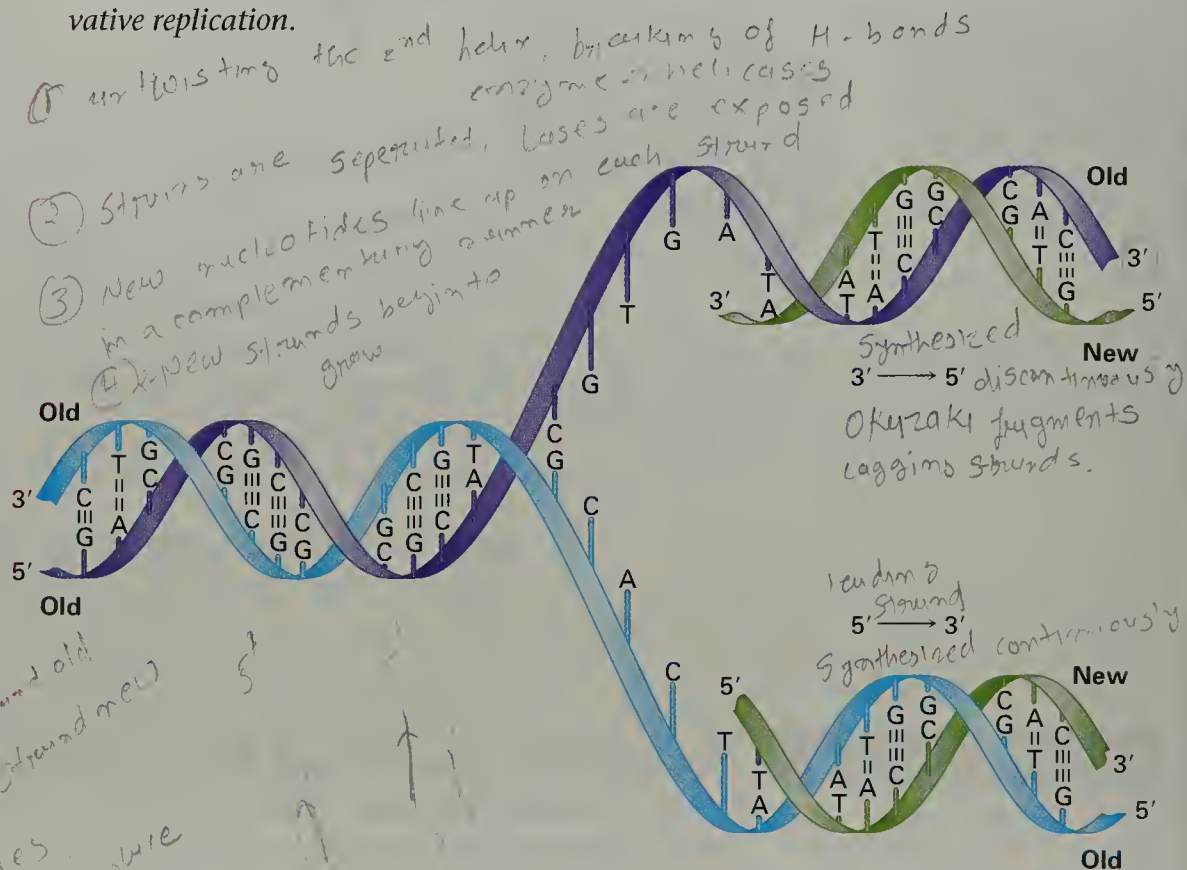 vative replication.
① untwisting the 2nd helix, breaking of H-bonds
enzyme helicases
② are seperated, bases are exposed
③ New nucleotides line up on each strand
in a complementary manner
④ New strands begin to
grow
Old
3′
5′
Old
C G
T A
G C
C G
G C
C G
C G
G C
C G
G C
T A
C G
G
T
G
A
T A
3′
A T
T A
G C
G C
C G
A T
C G
Old
3′
5′
New
Synthesized
3′ → 5′ discontinuously
Okazaki fragments
lagging strands.
C
A
C
T
leading
strand
5′ → 3′
Synthesized continuously
5′
T A
A T
T A
G C
G C
C G
A T
C G
New
3′
5′
Old
old
new
5'